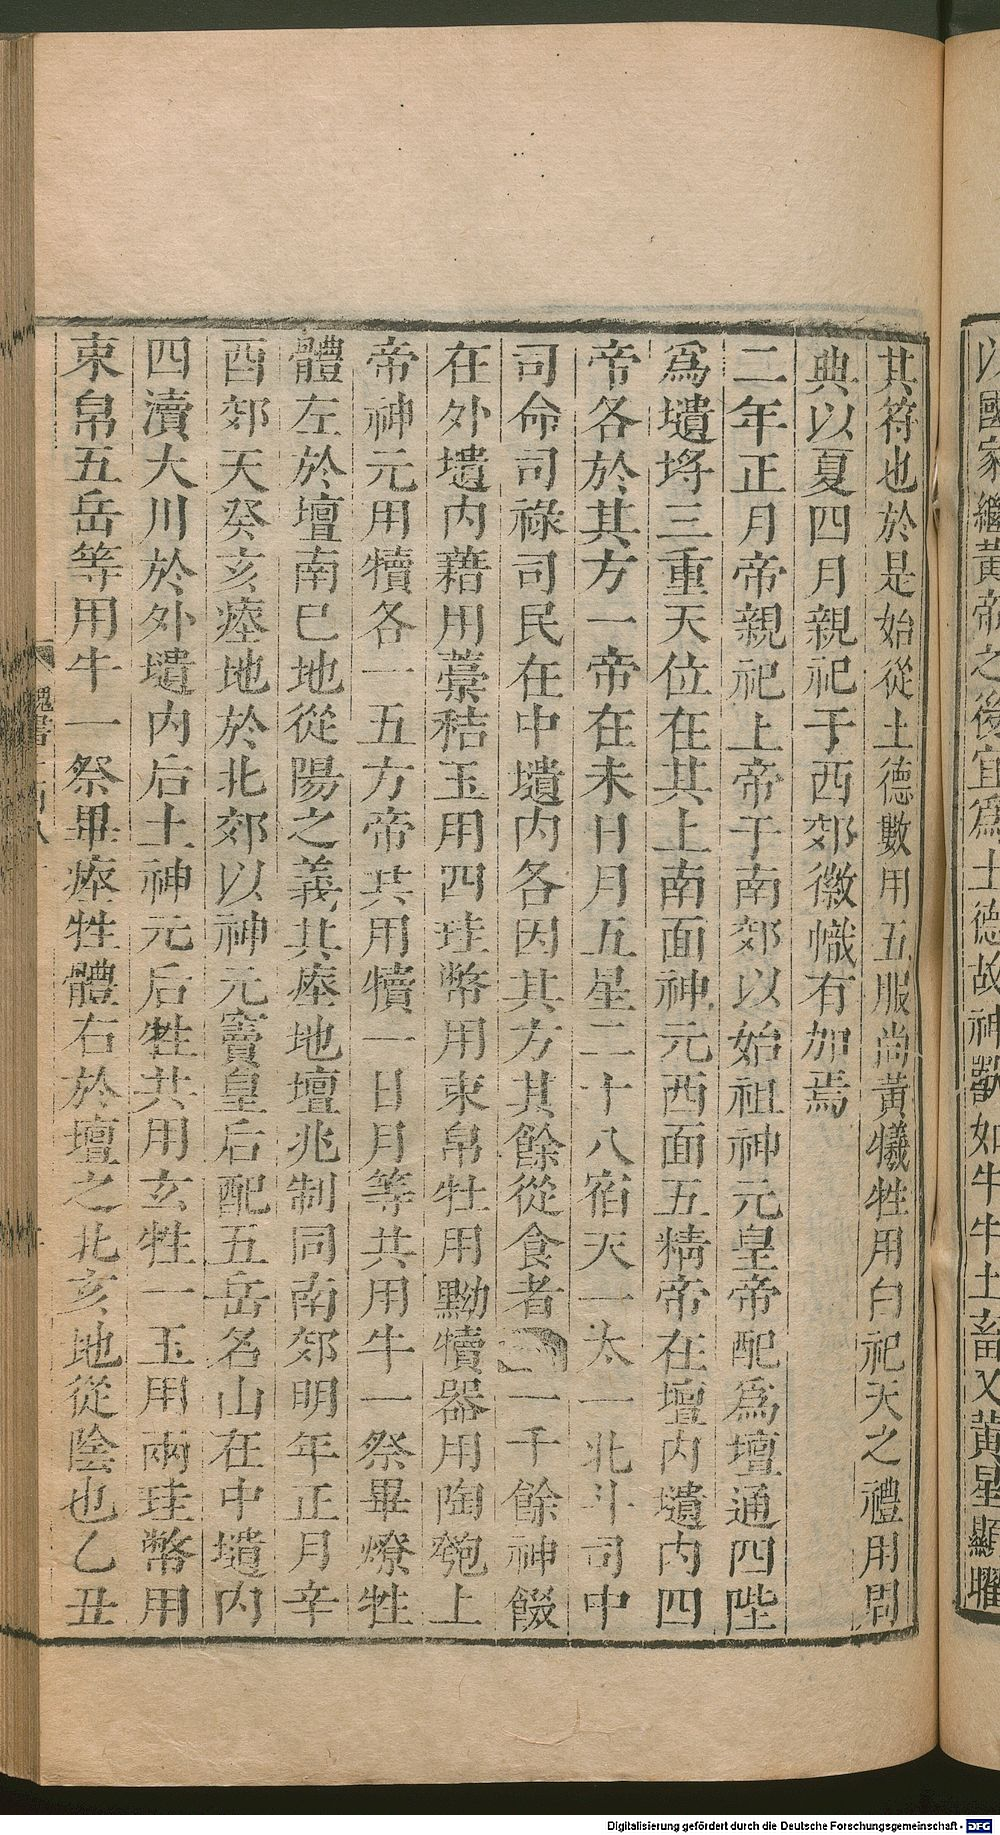 以國家繼黃帝之後宜爲土德故神獸如牛牛土畜又黃星顯曜
其符也於是始從土德數用五服尚黃犧牲用白祀天之禮用周
典以夏四月親祀于西郊徽幟有加焉
二年正月帝親祀上帝于南郊以始祖神元皇帝配爲壇通四陛
爲壝埒三重天位在其上南面神元西面五精帝在壇內壝內四
帝各於其方一帝在未日月五星二十八宿天一太一北斗司中
司命司祿司民在中壝內各因其方其餘從食者一千餘神餟
在外壝內藉用藁秸玉用四珪幣用束帛牡用黝犢器用陶匏上
帝神元用犢各一五方帝共用犢一日月等共用牛一祭畢燎牲
體左於壇南巳地從陽之義其瘞地壇兆制同南郊明年正月辛
酉郊天癸亥瘞地於北郊以神元竇皇后配五岳名山在中壝內
四瀆大川於外壝內后土神元后牲共用玄牲一玉用兩珪幣用
束帛五岳等用牛一祭畢瘞牲體右於壇之北亥地從陰也乙丑
魏書
Digitalisierung gefördert durch die Deutsche Forschungsgemeinschaft - DFG